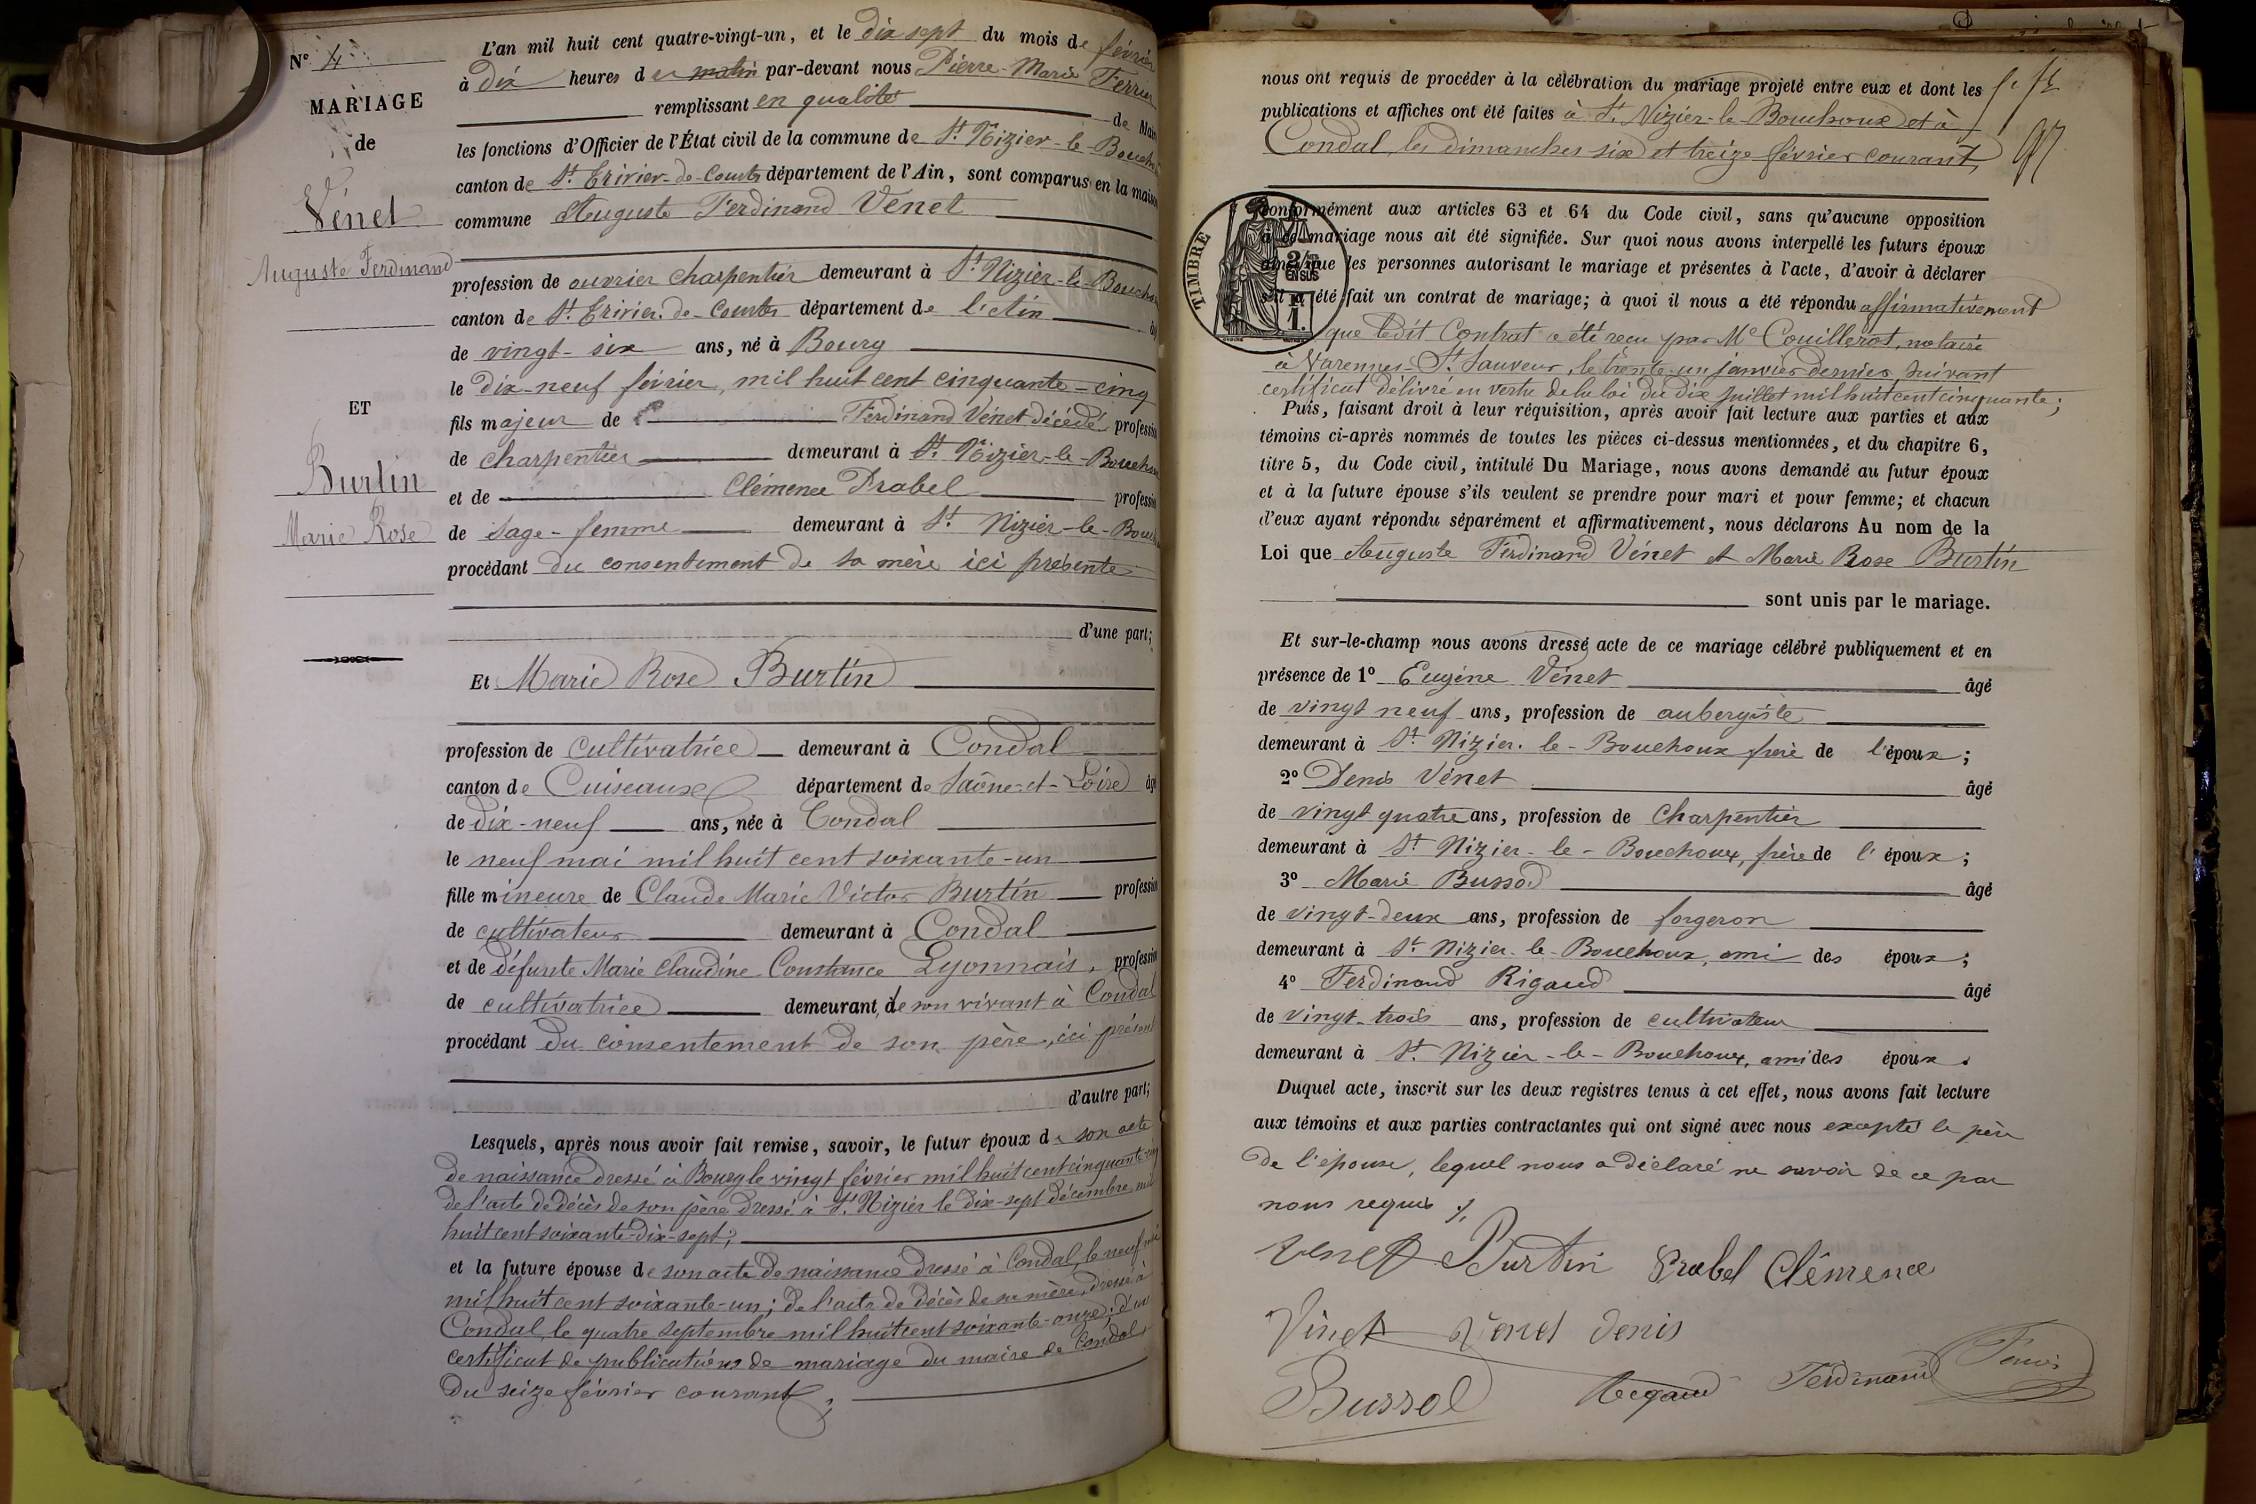 N° 4
MARIAGE
de
Vénet
Auguste Ferdinand
ET
Burtin
Marie Rose
L'an mil huit cent quatre-vingt-un, et le dix sept du mois de février
à dix heures du matin par-devant nous Pierre-Marie
remplissant en qualité de Mai
les fonctions d'Officier de l'État civil de la commune de St Nizier-le-Bouch
canton de St Trivier-de-Courtes département de l'Ain, sont comparus en la maison
commune Auguste Ferdinand Vénet
profession de ouvrier charpentier demeurant à St Nizier-le-Boucho
canton de St Trivier-de-Courtes département de l'Ain âg
de vingt-six ans, né à Bourg
le dix-neuf février, mil huit cent cinquante-cinq
fils majeur de Ferdinand Vénet décédé profession
de charpentier demeurant à St Nizier-le-Bouchou
et de Clémence Prabel profession
de sage-femme demeurant à St Nizier-le-Bouch
procédant du consentement de sa mère ici présente
d'une part;
Et Marie Rose Burtin
profession de cultivatrice demeurant à Condal
canton de Cuiseaux département de Saône-et-Loire âg
de dix-neuf ans, née à Condal
le neuf mai mil huit cent soixante-un
fille mineure de Claude Marie Victor Burtin profession
de cultivateur demeurant à Condal
et de défunte Marie Claudine Constance Lyonnais, profession
de cultivatrice demeurant, de son vivant à Condal
procédant du consentement de son père, ici présent
d'autre part;
Lesquels, après nous avoir fait remise, savoir, le futur époux de son acte
de naissance dressé à Bourg le vingt février mil huit cent cinquante-cinq
de l'acte de décès de son père dressé à St Nizier le dix-sept décembre mil
huit cent soixante-dix-sept;
et la future épouse de son acte de naissance dressé à Condal, le neuf mai
mil huit cent soixante-un; de l'acte de décès de sa mère, dressé à
Condal, le quatre septembre mil huit cent soixante-onze; d'un
certificat de publications de mariage du maire de Condal
du seize février courant;
nous ont requis de procéder à la célébration du mariage projeté entre eux et dont les
publications et affiches ont été faites à St Nizier-le-Bouchoux et à
Condal, les dimanches six et treize février courant,
TIMBRE
conformément aux articles 63 et 64 du Code civil, sans qu'aucune opposition
à ce mariage nous ait été signifiée. Sur quoi nous avons interpellé les futurs époux
ainsi que les personnes autorisant le mariage et présentes à l'acte, d'avoir à déclarer
s'il a été fait un contrat de mariage; à quoi il nous a été répondu affirmativement
que ledit Contrat a été reçu par Me Couillerot, notaire
à Varennes-St Sauveur, le trente-un janvier dernier, suivant
certificat délivré en vertu de la loi du dix juillet mil huit cent cinquante;
Puis, faisant droit à leur réquisition, après avoir fait lecture aux parties et aux
témoins ci-après nommés de toutes les pièces ci-dessus mentionnées, et du chapitre 6,
titre 5, du Code civil, intitulé Du Mariage, nous avons demandé au futur époux
et à la future épouse s'ils veulent se prendre pour mari et pour femme; et chacun
d'eux ayant répondu séparément et affirmativement, nous déclarons Au nom de la
Loi que Auguste Ferdinand Vénet et Marie Rose Burtin
sont unis par le mariage.
Et sur-le-champ nous avons dressé acte de ce mariage célébré publiquement et en
présence de 1° Eugène Vénet âgé
de vingt neuf ans, profession de aubergiste
demeurant à St Nizier-le-Bouchoux frère de l'époux;
2° Denis Vénet âgé
de vingt quatre ans, profession de charpentier
demeurant à St Nizier-le-Bouchoux, frère de l'époux;
3° Marie Bussod âgé
de vingt-deux ans, profession de forgeron
demeurant à St Nizier-le-Bouchoux, ami des époux;
4° Ferdinand Rigaud âgé
de vingt-trois ans, profession de cultivateur
demeurant à St Nizier-le-Bouchoux, ami des époux.
Duquel acte, inscrit sur les deux registres tenus à cet effet, nous avons fait lecture
aux témoins et aux parties contractantes qui ont signé avec nous excepté le père
de l'épouse, lequel nous a déclaré ne savoir de ce par
nous requis
Venet Burtin Prabel Clémence
Vinet Venet Denis
Bussod Regaud Ferdinand